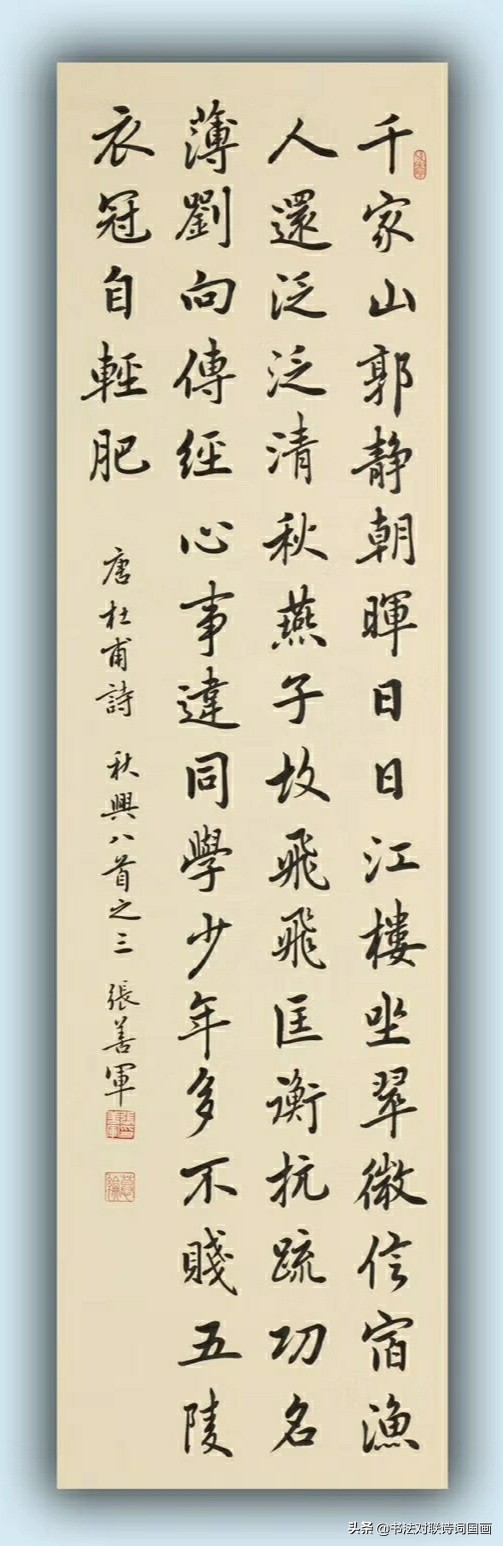 千家山郭静朝暉日日江樓坐翠微信宿漁
人還泛泛清秋燕子故飛飛匡衡抗疏功名
薄劉向傳經心事違同學少年多不賤五陵
衣冠自輕肥
唐杜甫詩 秋興八首之三 張善軍
头条 @书法对联诗词国画